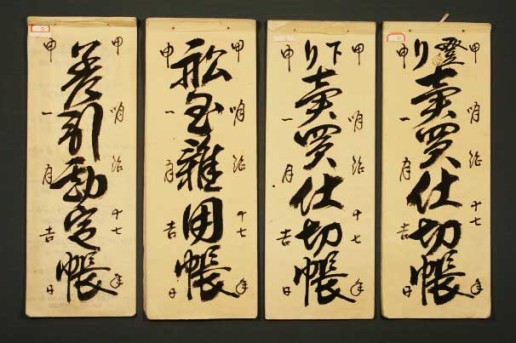 甲 明治十七年
登り賣買仕切帳
申 一月吉日
甲 明治十七年
下り賣買仕切帳
申 一月吉日
甲 明治十七年
舩雜用帳
申 一月吉日
甲 明治十七年
差引勘定帳
申 一月吉日